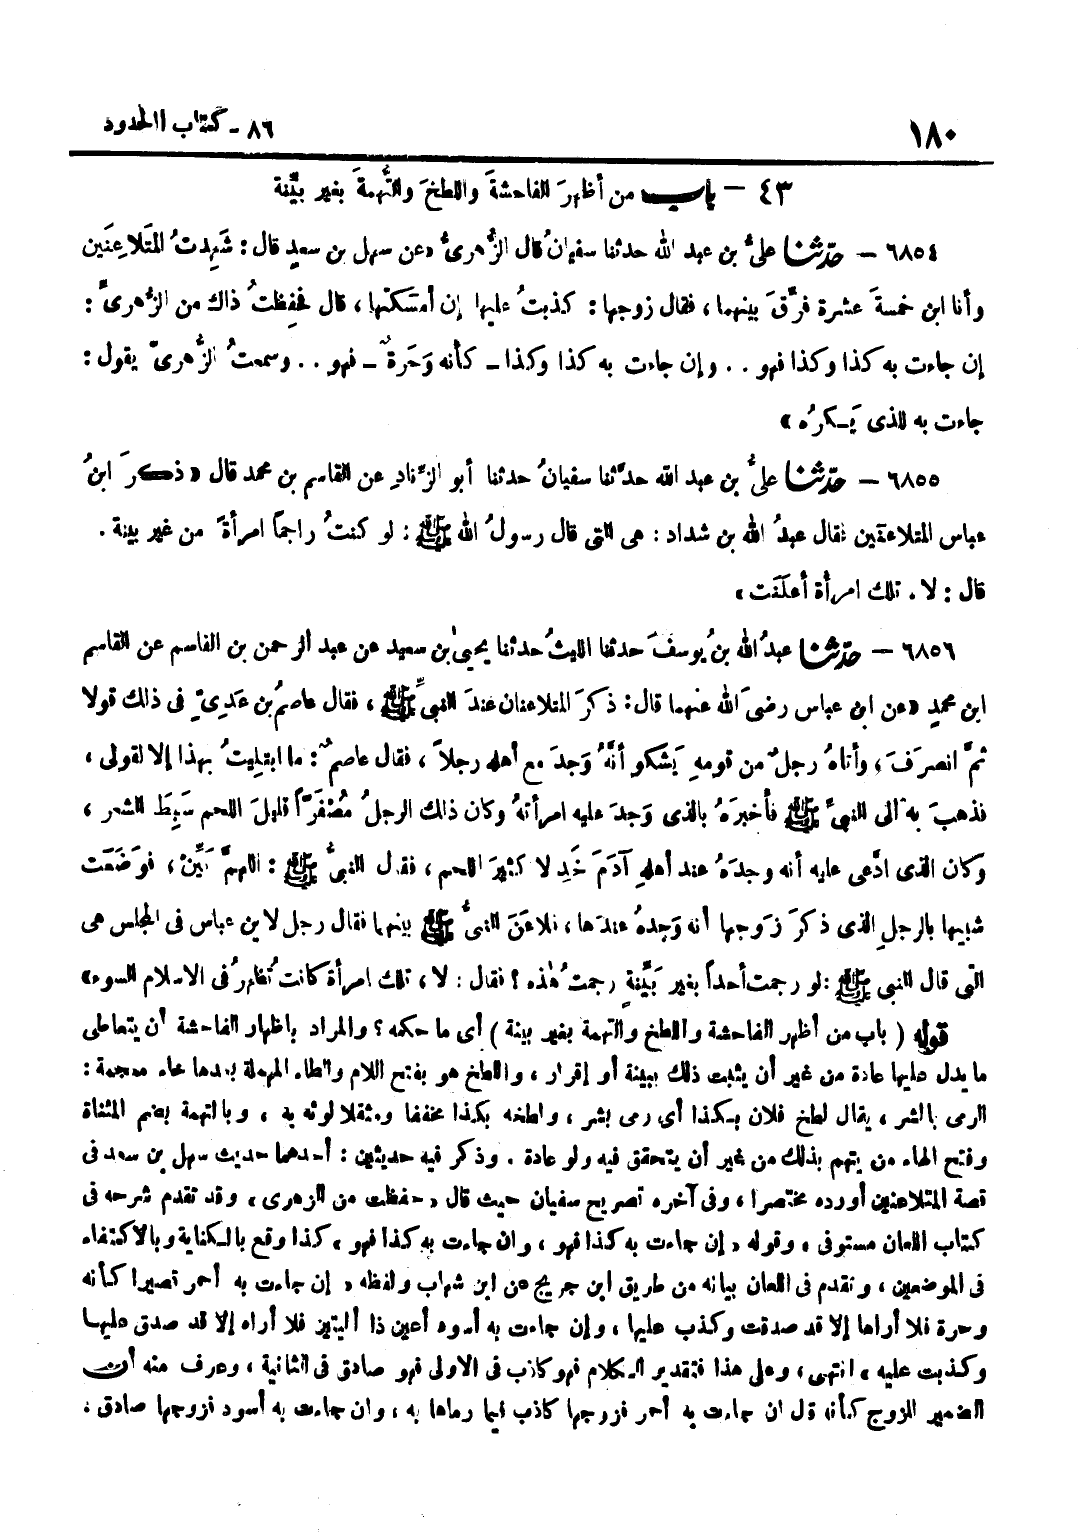 ١٨٠
٨٦ - كتاب الحدود
٤٣ - باب من أظهرَ الفاحشةَ واللطخَ والتُّهمةَ بغير بيِّنة
٦٨٥٤ - حدّثنا علىُّ بن عبد الله حدثنا سفيانُ قال الزُّهرىُّ «عن سهل بن سعدٍ قال: شَهِدتُ المتَلاعِنَين
وأنا ابن خمسةَ عشرة فرَّقَ بينهما، فقال زوجها: كذبتُ عليها إن أمسَكتها، قال فحفِظتُ ذاك من الزُّهرىّ:
إن جاءت به كذا وكذا فهو .. وإن جاءت به كذا وكذا - كأنه وَحَرةٌ - فهو .. وسمعتُ الزُّهرىّ يقول:
جاءت به للذى يُـكرَه»
٦٨٥٥ - حدّثنا علىُّ بن عبد الله حدَّثنا سفيانُ حدثنا أبو الزِّنادِ عن القاسم بن محمد قال «ذكرَ ابنُ
عباس المتلاعنَين فقال عبدُ الله بن شداد: هى التى قال رسولُ الله ﷺ: لو كنتُ راجماً امرأةً من غير بينة.
قال: لا. تلك امرأة أعلَنَت»
٦٨٥٦ - حدّثنا عبدُ الله بنُ يوسفَ حدثنا الليثُ حدثنا يحيىٰ بن سعيد عن عبد الرحمن بن القاسم عن القاسم
ابن محمدٍ «عن ابن عباس رضىَ الله عنهما قال: ذكرَ المتلاعنان عندَ النبىِّ ﷺ، فقال عاصمُ بن عَدِىّ فى ذلك قولا
ثمَّ انصرَفَ، وأتاهُ رجلٌ من قومهِ يَشكو أنَّهُ وَجدَ مع أهلهِ رجلاً، فقال عاصمٌ: ما ابتليتُ بهذا إلا لقولى،
فذهبَ به الى النبىِّ ﷺ فأخبرَهُ بالذى وَجدَ عليه امرأتهُ وكان ذلك الرجلُ مُصْفَرّاً قليلَ اللحم سَبِطَ الشعر،
وكان الذى ادَّعى عليه أنه وجدَهُ عند أهلهِ آدَمَ خَدِلا كثيرَ اللحم، فقال النبىُّ ﷺ: اللهمَّ بَيِّنْ، فوَضَعَت
شبيها بالرجلِ الذى ذكرَ زَوجها أنه وَجدهُ عندَها، فلاعَنَ النبىُّ ﷺ بينهما فقال رجل لابن عباس فى المجلس هى
التى قال النبى ﷺ: لو رجمت أحداً بغير بَيِّنةٍ رجمتُ هٰذه؟ فقال: لا، تلك امرأة كانت تُظهِرُ فى الاسلام السوء»
قوله ( باب من أظهر الفاحشة واللطخ والتهمة بغير بينة ) أى ما حكمه؟ والمراد باظهار الفاحشة أن يتعاطى
ما يدل عليها عادة من غير أن يثبت ذلك ببينة أو إقرار، واللطخ هو بفتح اللام والطاء المهملة بعدها خاء معجمة:
الرمى بالشر، يقال لطخ فلان بـكذا أى رمى بشر، ولطخه بكذا مخففا ومثقلا لوثه به، وبالتهمة بضم المثناة
وفتح الهاء من يتهم بذلك من غير أن يتحقق فيه ولو عادة. وذكر فيه حديثين: أحدهما حديث سهل بن سعد فى
قصة المتلاعنين أورده مختصرا، وفى آخره تصريح سفيان حيث قال «حفظت من الزهرى» وقد تقدم شرحه فى
كتاب اللعان مستوفى، وقوله «إن جاءت به كذا فهو، وان جاءت به كذا فهو» كذا وقع بالـكناية وبالاكتفاء
فى الموضعين، وتقدم فى اللعان بيانه من طريق ابن جريج عن ابن شهاب ولفظه «إن جاءت به أحمر قصيرا كأنه
وحرة فلا أراها إلا قد صدقت وكذب عليها، وإن جاءت به أسود أعين ذا أليتين فلا أراه إلا قد صدق عليها
وكذبت عليه» انتهى، وعلى هذا فتقدير الـكلام فهو كاذب فى الاولى فهو صادق فى الثانية، وعرف منه أن
الضمير للزوج كأنه قال ان جاءت به أحمر فزوجها كاذب فيما رماها به، وان جاءت به أسود فزوجها صادق،